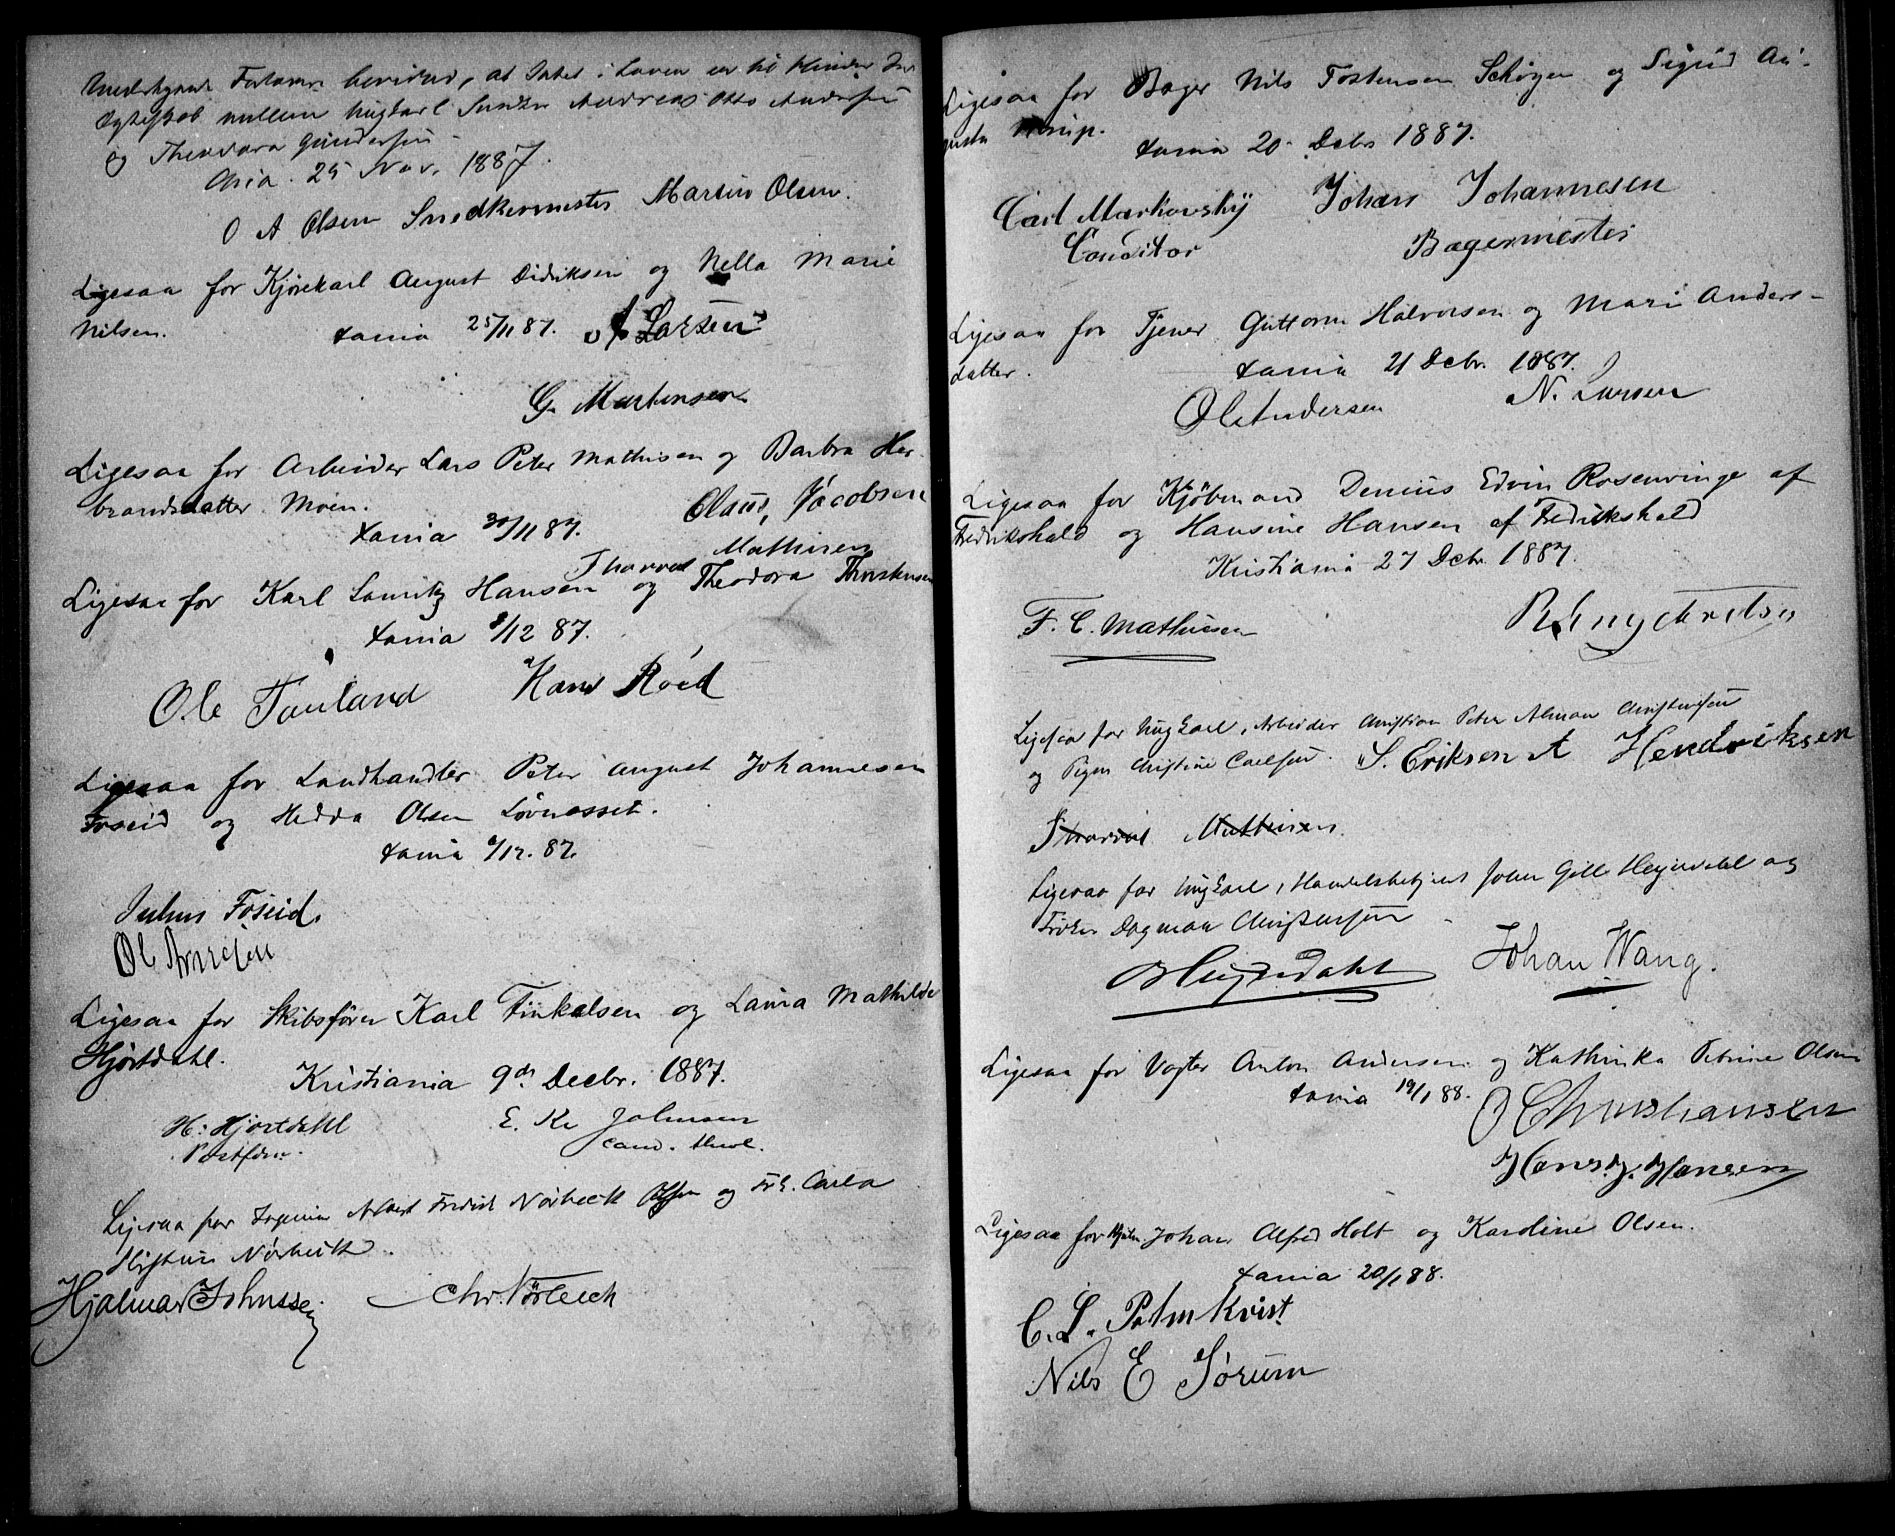 Undertegnede Forlovere bevidner, at Intet i Loven er til Hinder for
Ægteskab mellem Ungkarl Snedker Andreas Otto Andersen
og Theodora Gundersen
Chria. 25 Nov. 1887.
O A Olsen Snedkermester Martin Olsen.
Ligesaa for Kjørekarl August Didriksen og Nella Marie
Nilsen.
Xania 25/11 87. A Larsen
G. Martensen
Ligesaa for Arbeider Lars Peter Mathisen og Barbra Her-
brandsdatter Moen.
Claus, Jacobsen
Xania 30/11 87.
Thorvad Mathisen
Ligesaa for Karl Lauritz Hansen og Theodora Thorstensen
Xania 8/12 87.
Ole Fauland Hans Röed
Ligesaa for Landhandler Peter August Johannesen
Foseid og Hedda Olsen Lövnesset.
Xania 9/12. 87.
Julius Foseid.
Ole Arnesen
Ligesaa for Skibsfører Karl Finkelsen og Laura Mathilde
Hjørtdahl.
Kristiania 9de Decbr. 1887.
H. Hjørtdahl E. Kr Johnsen
cand. theol.
Ligesaa for Ingeniør Albert Fredrik Nörbech Olsen og Frk. Carla
Nörbech.
Hjalmar Johnssen Chr. Nörbech
Ligesaa for Bager Nils Tostensen Schøyen og Sigrid Au-
gusta
Xania 20 Debr 1887.
Carl Markovsky Johan Johannesen
Conditor Bagermester
Ligesaa for Tjener Guttorm Halvorsen og Mari Anders-
datter.
Xania 21 Decbr. 1887.
Ole Andersen N. Larsen
Ligesaa for Kjöbmand Denius Edvin Rosenvinge af
Fredrikshald og Hansine Hansen af Fredrikshald
Kristiania 27 Decbr. 1887.
F. C. Mathiesen
Ligesaa for Ungkarl, Arbeider Christian Peter Alman Christensen
og Pigen Christine Carlsen. S. Eriksen A Hendriksen
Thorvad Mathisen
Ligesaa for Ungkarl, Handelsbetjent John Gill Heyerdahl og
Frøken Dagmar Christensen
Heyerdahl Johan Wang.
Ligesaa for Vogter Anton Andersen og Kathinka Petrine Olsen
Xania 19/1 88. O Christiansen
Hans J. Hansen
Ligesaa for Johan Alfred Holt og Karoline Olsen.
Xania 20/1 88.
C. L. Palmkvist
Nils E Sörum